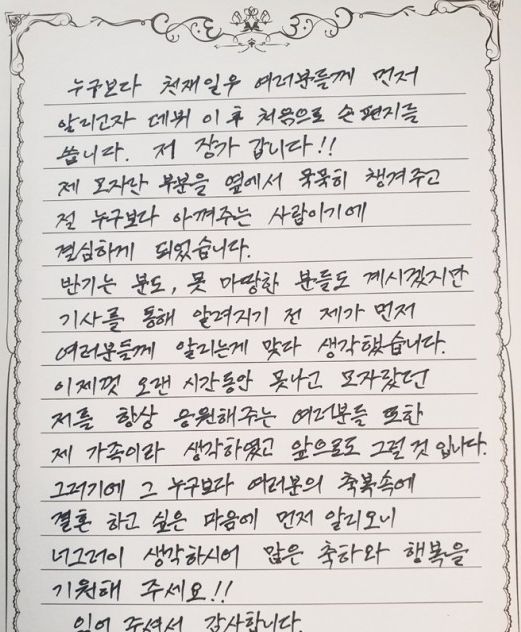 누구보다 천재일우 여러분들께 먼저
알리고자 데뷔 이후 처음으로 손편지를
씁니다. 저 장가 갑니다!!
제 모자란 부분을 옆에서 묵묵히 챙겨주고
절 누구보다 아껴주는 사람이기에
결심하게 되었습니다.
반기는 분도, 못 마땅한 분들도 계시겠지만
기사를 통해 알려지기 전 제가 먼저
여러분들께 알리는게 맞다 생각했습니다.
이제껏 오랜 시간동안 못나고 모자랐던
저를 항상 응원해주는 여러분들 또한
제 가족이라 생각하였고 앞으로도 그럴 것 입니다.
그러기에 그 누구보다 여러분의 축복속에
결혼 하고 싶은 마음에 먼저 알리오니
너그러이 생각하시어 많은 축하와 행복을
기원해 주세요!!
읽어 주셔서 감사합니다.